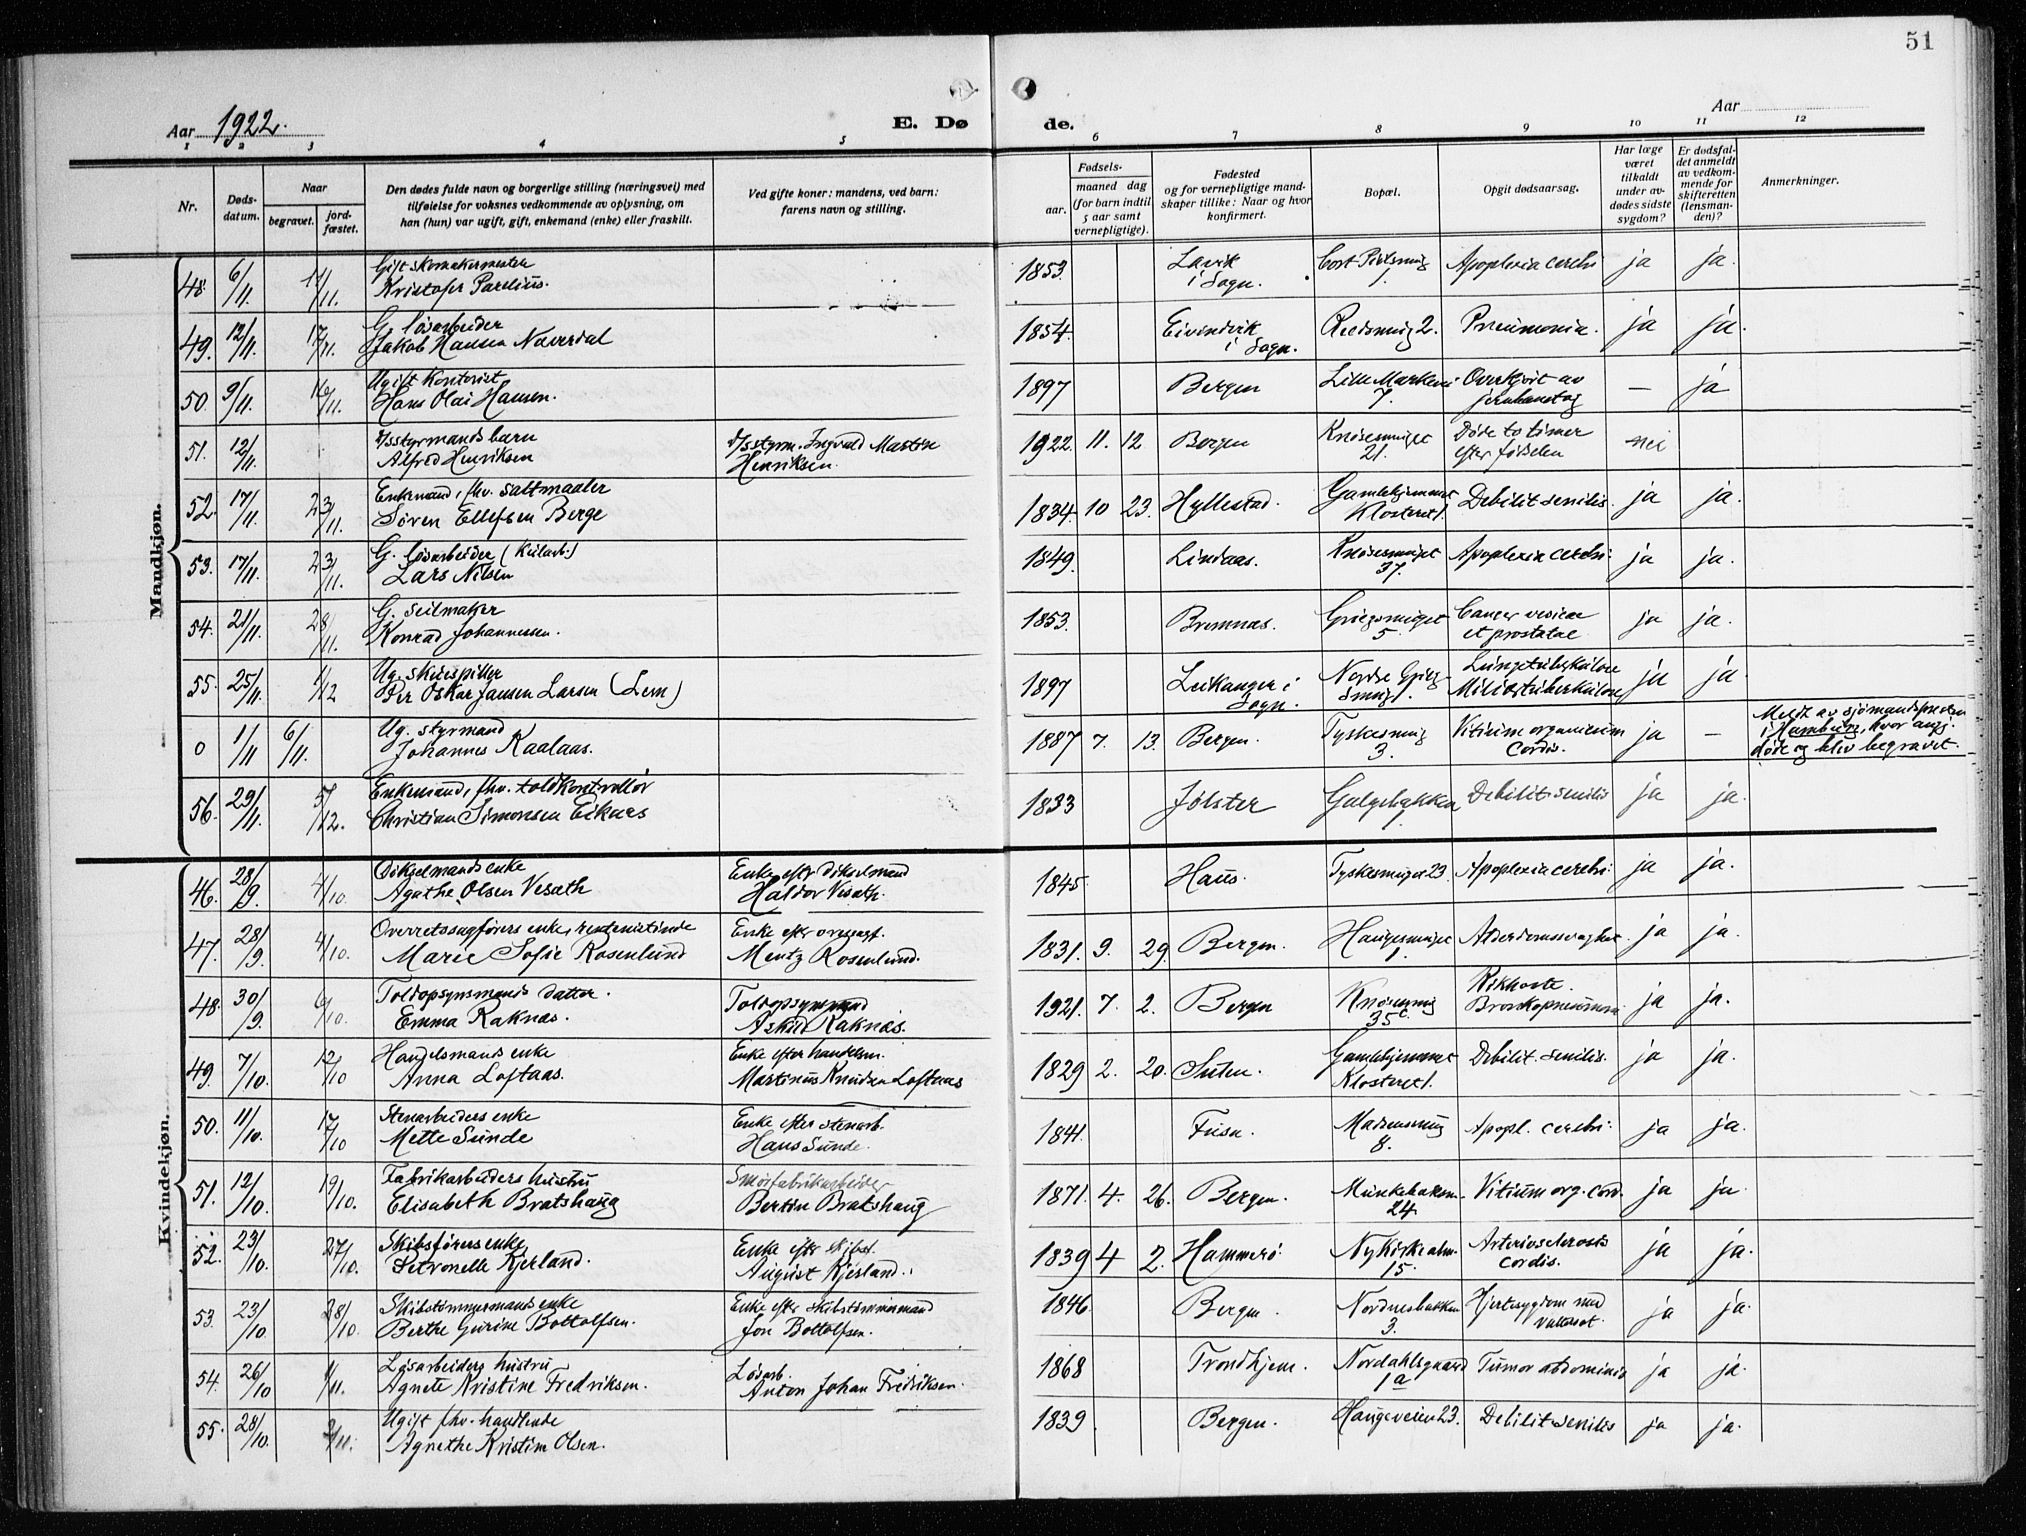 51
Aar 1922.
E. Døde.
Aar
1 2 3 4 5 6 7 8 9 10 11 12
Nr.
Døds-
datum.
Naar
begravet.
jord-
fæstet.
Den dødes fulde navn og borgerlige stilling (næringsvei) med
tilføielse for voksnes vedkommende av oplysning, om
han (hun) var ugift, gift, enkemand (enke) eller fraskilt.
Ved gifte koner: mandens, ved barn:
farens navn og stilling.
Fødsels-
aar.
maaned dag
(for barn indtil
5 aar samt
vernepligtige).
Fødested
og for vernepligtige mand-
skaper tillike: Naar og hvor
konfirmert.
Bopæl.
Opgit dødsaarsag.
Har læge
været
tilkaldt
under av-
dødes sidste
sygdom?
Er dødsfal-
det anmeldt
av vedkom-
mende for
skifteretten
(lensman-
den)?
Anmerkninger.
Mandkjøn.
48. 6/11. 11/11. Gift skomakermester
Kristofer Parelius. 1853. Lavik
i Sogn. 1. Apoplexia cerebri ja ja.
49. 12/11. 17/11. G. løsarbeider
Jakob Hansen Næverdal 1854. Eivindvik
i Sogn. 2. Pneumonia. ja ja.
50. 9/11. 16/11. Ugift kontorist
Hans Olai Hansen. 1897 Bergen Lille Markevei
7. Overkjørt av
jernbanetog — ja
51. 12/11. D/sstyrmands barn
Alfred Henriksen D/sstyrm. Ingvald Martin
Henriksen. 1922. 11. 12 Bergen Knøsesmuget
21. Døde to timer
efter fødselen nei
52. 17/11. 23/11. Enkemand, fhv. saltmaaler
Søren Ellefsen Berge 1834. 10 23. Hyllestad. Gamlehjemmet
Klosteret 1. Debilit. senilis. ja ja.
53. 17/11. 23/11. G. løsarbeider (Kularb.)
Lars Nilsen 1849. Lindaas. Knøsesmuget
37. Apoplexia cerebri ja ja.
54. 21/11. 28/11. G. seilmaker
Konrad Johannessen. 1853. Bremnas. Griegsmuget
5. Cancer vesicae
et prostatae ja ja.
55. 25/11. 1/12 Ug. skuespiller
Per Oskar Jansen Larsen (Lem) 1897 Leikanger i
Sogn. Nordre Grieg-
smug 1. Lungetuberkulose
Miliærtuberkulose ja ja.
0 1/11 6/11. Ug. styrmand
Johannes Kaalaas. 1887 7. 13. Bergen. Tyskesmug
3. Vitium organicum
cordis. ja — Meldt av sjømandspresten
i Hamburg, hvor angj.
døde og blev begravet.
56. 29/11. 5/12. Enkemand, fhv. toldkontrollør
Christian Simonsen Eiknes 1833 Jølster Galgebakken
1 Debilit. senilis ja ja.
Kvindekjøn.
46. 28/9. 4/10. Dikselmands enke
Agathe Olsen Vesath Enke efter dikselmand
Haldor Vesath. 1845. Haus. Tyskesmuget 23. Apoplexia cerebri ja ja.
47. 28/9. 4/10. Overretssagførers enke, rentenistinde
Marie Sofie Rosenlund Enke efter overretsf.
Mentz Rosenlund. 1831. 9. 29. Bergen. Haugesmuget
1. Alderdomssvaghet. ja ja.
48. 30/9. 6/10. Toldopsynsmands datter.
Emma Raknæs. Toldopsynsmand
Askild Raknæs. 1921. 7. 2. Bergen Knøsesmug
35c. Kikhoste.
Bronkopneumoni ja ja.
49. 7/10. 12/10 Handelsmands enke
Anna Loftaas. Enke efter handelsm.
Martinus Knudsen Loftaas 1829 2. 20. Sulen. Gamlehjemmet
Klosteret 1. Debilit. senilis. ja ja.
50. 11/10. 17/10 Stenarbeiders enke
Mette Sunde Enke efter stenarb.
Hans Sunde. 1841. Fusa. Madsensmug
8. Apopl. cerebri. ja ja.
51. 12/10. 19/10. Fabrikarbeiders hustru
Elisabeth Bratshaug Smørfabrikarbeider
Bertin Bratshaug 1871. 4. 26. Bergen. Munkebakm.
24. Vitium org. cord. ja ja
52. 23/10. 27/10. Skibsførers enke
Petronelle Kjerland. Enke efter skibsf.
August Kjerland. 1839 4 2. Hammerö. Nykirkealm.
15. Arteriosclerosis
cordis. ja ja.
53. 23/10. 28/10. Skibstømmermands enke
Berthe Gurine Bottolfsen. Enke efter skibstømmermand
Jon Bottolfsen. 1846. Bergen. Nordnesbakken
3. Hjertesygdom med
Vattersot. ja ja.
54. 26/10 1/11. Løsarbeiders hustru
Agnete Kristine Fredriksen. Løsarb.
Anton Johan Fredriksen. 1868 Trondhjem. Nordahlsgaard
1a Tumor abdominis ja ja.
55. 28/10. 2/11. Ugift fhv. handlende
Agnethe Kristine Olsen. 1839. Bergen. Haugeveien 23. Debilit. senilis ja ja.